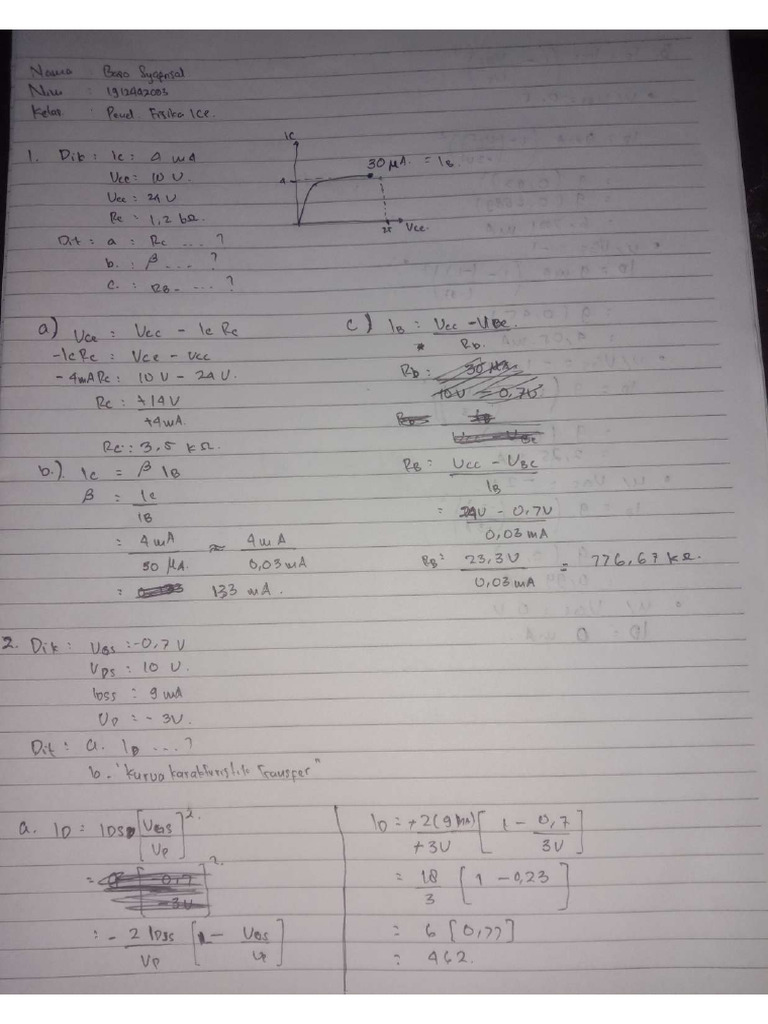 Nama :
Nim : 1912442003
Kelas : Pend. Fisika ICP.
1. Dik : Ic : 4 mA
Vce = 10 V.
Vcc = 24 V
Rc = 1,2 kΩ.
Dit : a : Rc ... ?
b. : β ... ?
c. : RB ... ?
Ic
4
30 μA. = IB.
25 Vce.
a) Vce = Vcc - Ic Rc
-Ic Rc = Vce - Vcc
- 4mA Rc : 10 V - 24 V.
Rc : +14 V
+4mA.
Rc : 3,5 kΩ.
b.) Ic = β IB
β = Ic
IB
: 4 mA ≈ 4 mA
30 μA. 0,03 mA
: 133 mA.
c) IB : Vcc - VBE.
Rb.
Rb :
RB : VCC - VBE
IB
= 24V - 0,7 V
0,03 mA
RB : 23,3 V = 776,67 kΩ.
0,03 mA
2. Dik : VGS : -0,7 V
VDS : 10 V.
IDSS : 9 mA
VP : - 3V.
Dit : a. ID ... ?
b. "Kurva karakteristik Transfer"
a. ID : IDSS [VGS
VP]2.
: - 2 IDSS [1 - VGS
VP VP]
ID = +2(9 mA) [1 - 0,7
+3V 3V]
= 18 [1 - 0,23]
3
= 6 [0,77]
= 462.